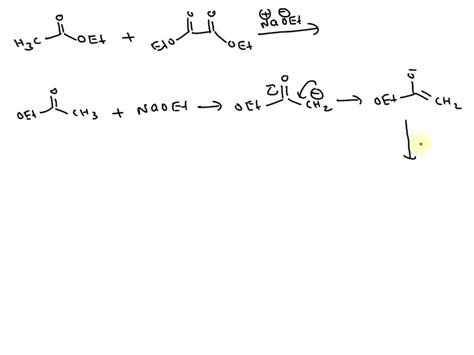 H3C O OEt + EtO O O OEt ⊕ ⊖ NaOEt
OEt O CH3 + NaOEt → OEt O CH2 ⊖ → OEt O⁻ CH2